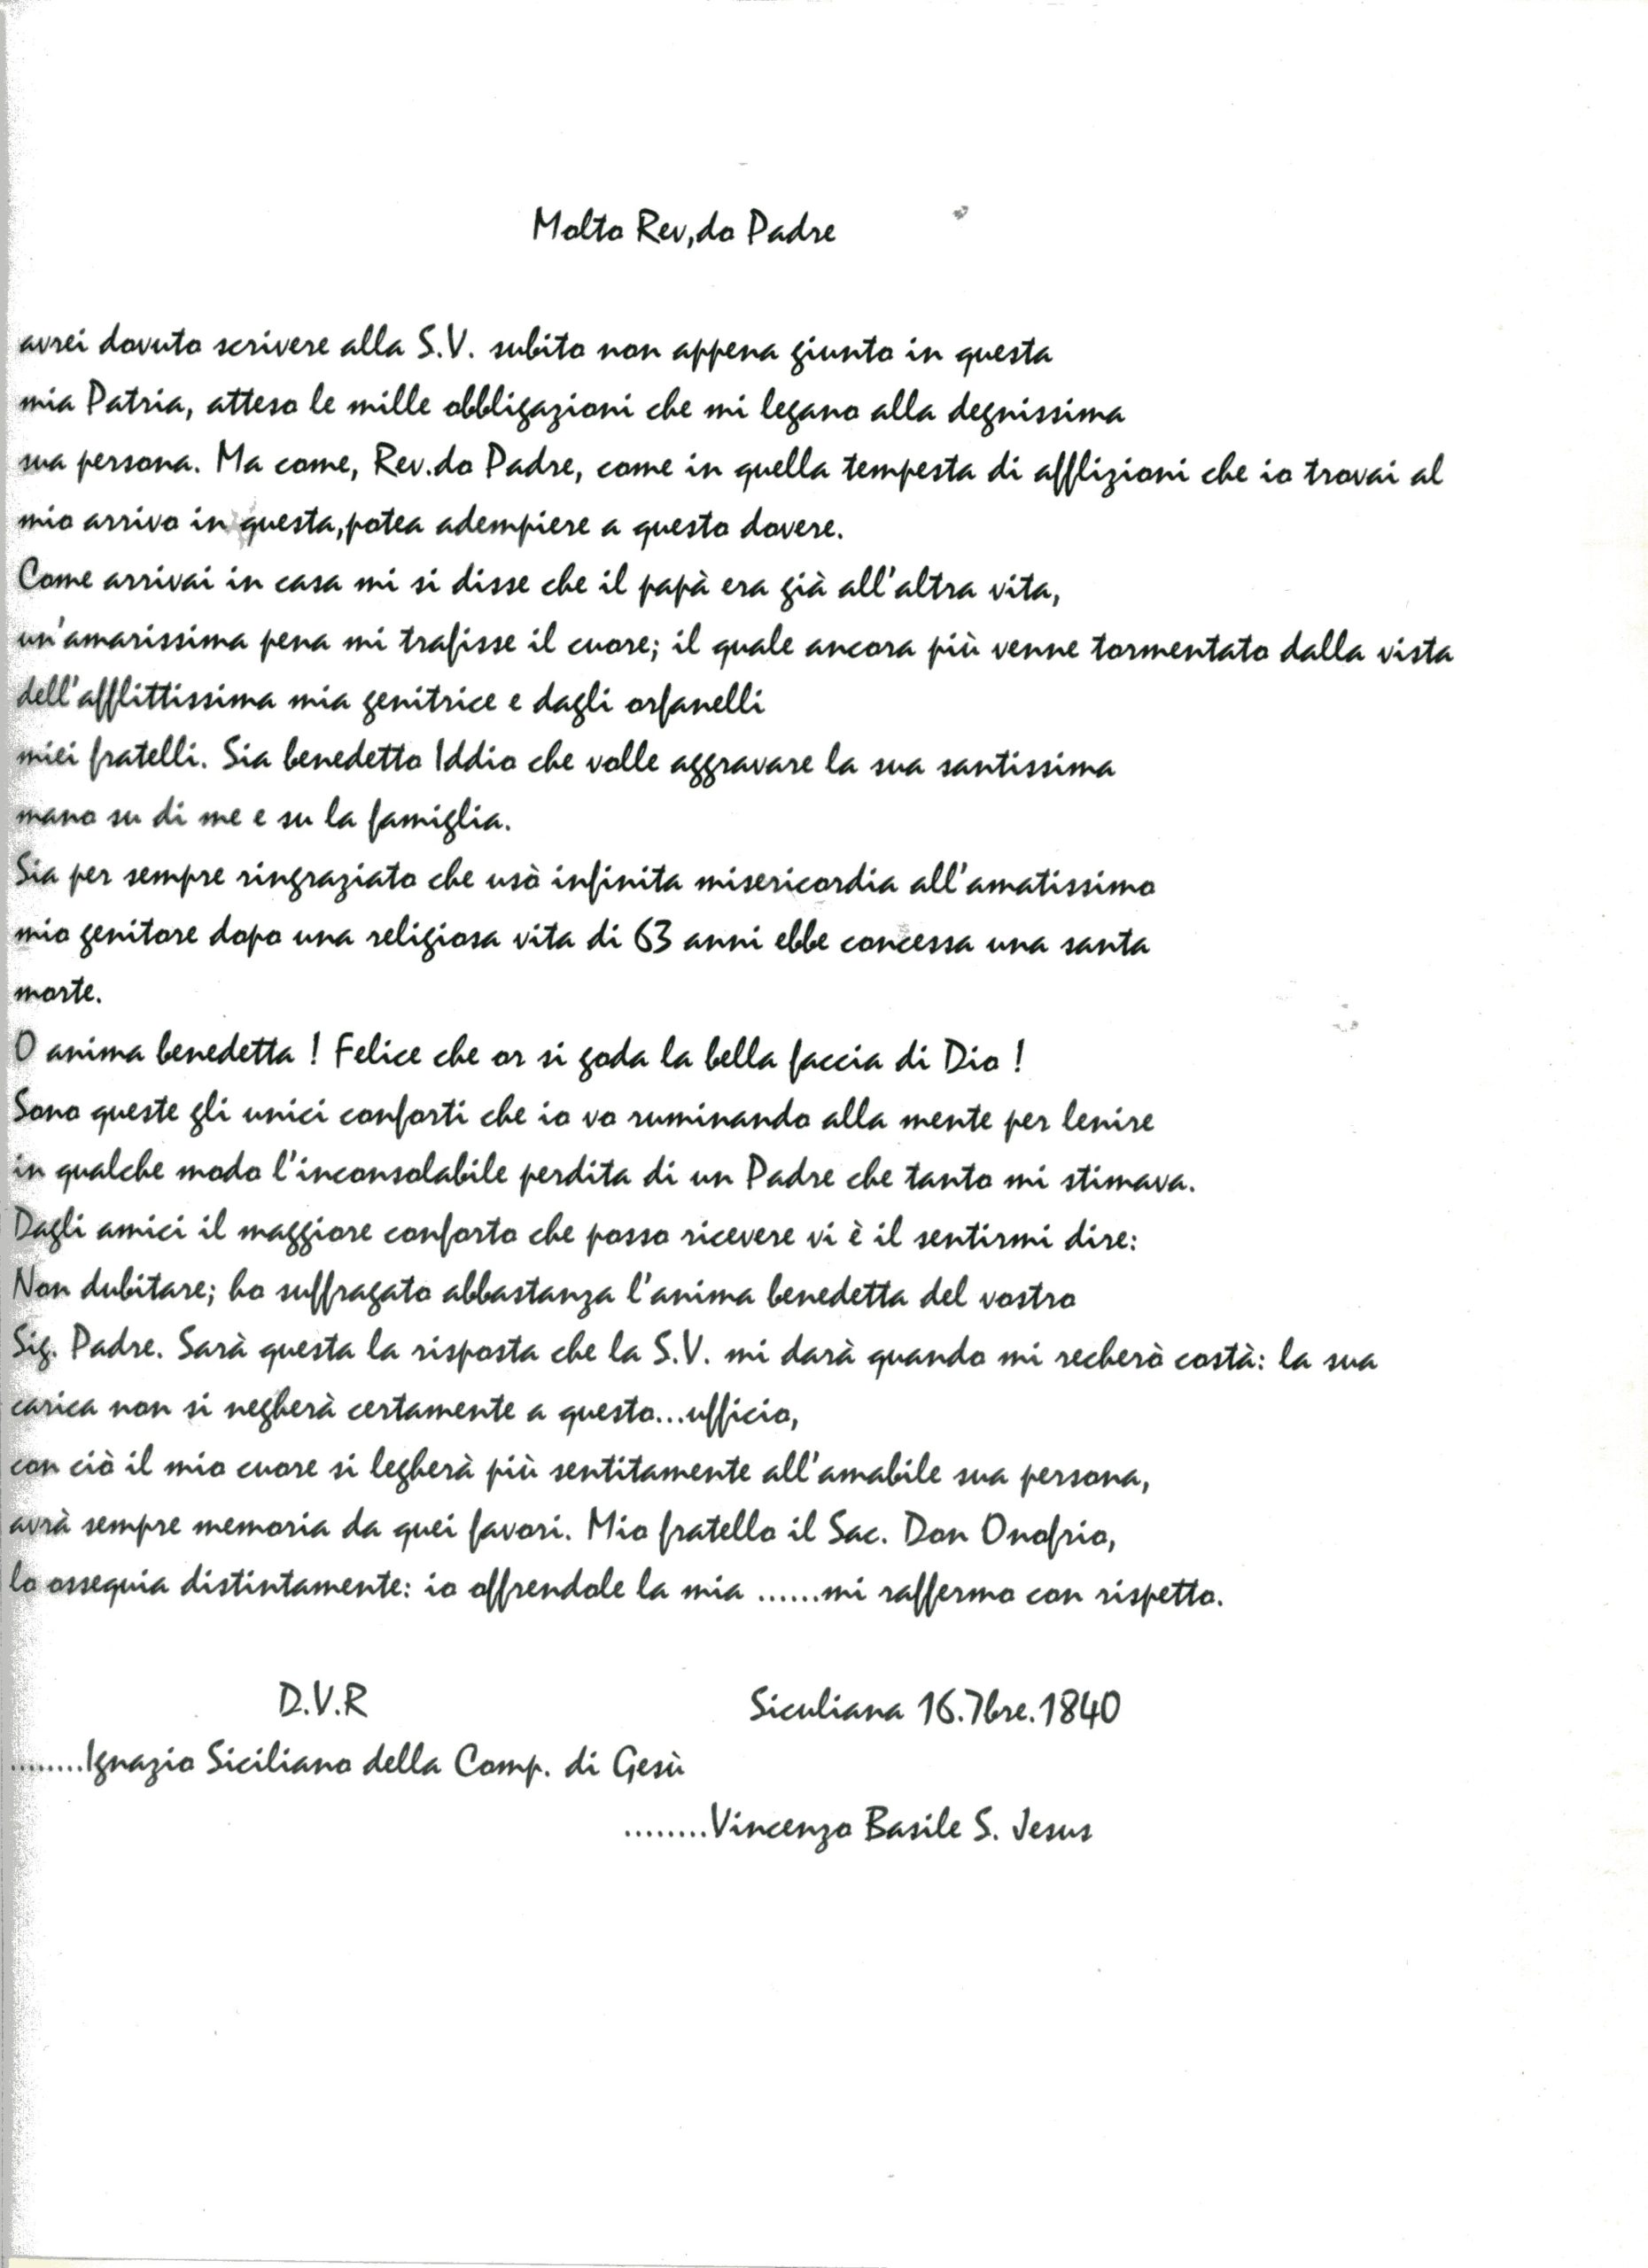 Molto Rev,do Padre
avrei dovuto scrivere alla S.V. subito non appena giunto in questa
mia Patria, atteso le mille obbligazioni che mi legano alla degnissima
sua persona. Ma come, Rev.do Padre, come in quella tempesta di afflizioni che io trovai al
mio arrivo in questa,potea adempiere a questo dovere.
Come arrivai in casa mi si disse che il papà era già all'altra vita,
un'amarissima pena mi trafisse il cuore; il quale ancora più venne tormentato dalla vista
dell'afflittissima mia genitrice e dagli orfanelli
miei fratelli. Sia benedetto Iddio che volle aggravare la sua santissima
mano su di me e su la famiglia.
Sia per sempre ringraziato che usò infinita misericordia all'amatissimo
mio genitore dopo una religiosa vita di 63 anni ebbe concessa una santa
morte.
O anima benedetta ! Felice che or si goda la bella faccia di Dio !
Sono queste gli unici conforti che io vo ruminando alla mente per lenire
in qualche modo l'inconsolabile perdita di un Padre che tanto mi stimava.
Dagli amici il maggiore conforto che posso ricevere vi è il sentirmi dire:
Non dubitare; ho suffragato abbastanza l'anima benedetta del vostro
Sig. Padre. Sarà questa la risposta che la S.V. mi darà quando mi recherò costà: la sua
carica non si negherà certamente a questo...ufficio,
con ciò il mio cuore si legherà più sentitamente all'amabile sua persona,
avrà sempre memoria da quei favori. Mio fratello il Sac. Don Onofrio,
lo ossequia distintamente: io offrendole la mia ......mi raffermo con rispetto.
D.V.R Siculiana 16.7bre.1840
........Ignazio Siciliano della Comp. di Gesù
........Vincenzo Basile S. Jesus